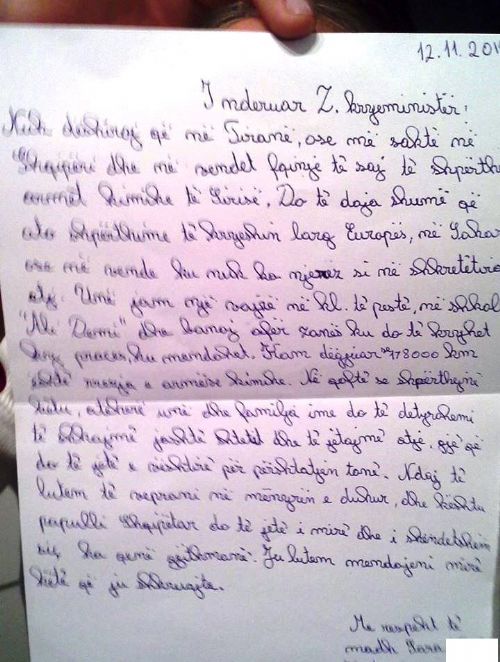 12.11.201
I nderuar Z. kryeministër:
Nuk dëshiroj që në Tiranë, ose më saktë në
Shqipëri dhe në vendet fqinje të saj të shpërthe
armët kimike të Sirisë. Do të doja shumë që
ato shpërthime të kryeshin larg Europës, në Sahar
ose në vende ku nuk ka njerëz si në shkretëtira
etj. Unë jam një vajzë në kl. të pestë, në shkoll
"Ali Demi" dhe banoj afër zonës ku do të kryhet
ky proces, ku mendohet. Kam dëgjuar se 178000 km
është rrezja e armëve kimike. Në qoftë se shpërthejnë
këtu, atëherë unë dhe familja ime do të detyrohemi
të shkojmë jashtë shtetit dhe të jetojmë atje, gjë që
do të jetë e vështirë për përshtatjen tonë. Ndaj të
lutem të veprani në mënyrën e duhur, dhe kështu
populli Shqiptar do të jetë i mirë dhe i shëndetshëm
siç ka qenë gjithmonë. Ju lutem mendojeni mirë
këtë që ju shkruajta.
Me respekt të
madh Sara